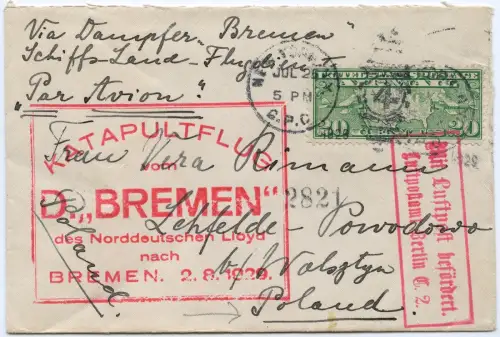 Via Dampfer „Bremen"
Schiffs-Land-Flugdienst
"Par Avion".
NEW YORK, N.Y.
JUL 2
5 PM
G.P.O.
1929
UNITED STATES POSTAGE
AIR MAIL
20
KATAPULTFLUG
vom
D. „BREMEN"
des Norddeutschen Lloyd
nach
BREMEN. 2.8.1929.
2821
Mit Luftpost befördert.
Luftpostamt Berlin C. 2.
Frau Vera Rimann
Lehfelde-Powodowo
b/ Wolsztyn
Poland.
Poland.